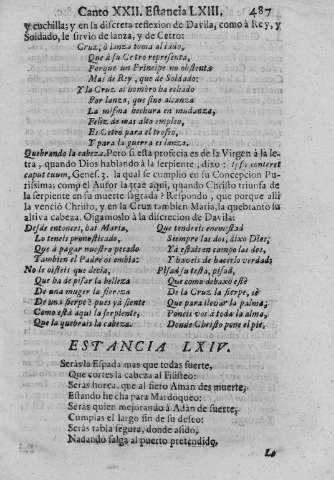 Canto XXII. Estancia LXIII. 487
y cuchilla; y en la discreta reflexion de Davila, como à Rey, y
Soldado, le sirvio de lanza, y de Cetro:
Cruz, ò lanza toma al lado,
Que à su Cetro representa,
Porque un Principe no obstenta
Mas de Rey, que de Soldado:
Y la Cruz al hombro ha echado
Por lanza, que sino alcanza
La misma hechura en mudanza,
Feliz de mas alto empleo,
Es Cetro para el trofeo,
Y para la guerra es lanza.
Quebrando la cabeza. Pero si esta profecia es de la Virgen à la le-
tra, quando Dios hablando à la serpiente, dixo: ipsa conteret
caput tuum, Genes. 3. la qual se cumplio en su Concepcion Pu-
rissima; como el Autor la trae aqui, quando Christo triunfa de
la serpiente en su muerte sagrada? Respondo, que porque alli
la venciò Christo, y en la Cruz tambien Maria, la quebrantò su
altiva cabeza. Oigamoslo à la discrecion de Davila:
Desde entonces, bai Maria,
Lo teneis pronosticado,
Que à pagar nuestro pecado
Tambien el Padre os embia:
No le oisteis que decia,
Que ha de pisar la belleza
De una muger la fiereza
De una sierpe? pues yà siente
Como està aqui la serpiente,
Que la quebrais la cabeza.
Que tendreis enemistad
Siempre las dos, dixo Dios,
Yà estais en campo las dos,
Y haveis de hacerlo verdad;
Pisad su testa, pisad,
Que como debaxo està
De la Cruz la sierpe, se
Que para llevar la palma,
Poneis vos à toda la alma,
Donde Christo pone el pie.
ESTANCIA LXIV.
Seràs la Espada mas que todas fuerte,
Que cortes la cabeza al Filisteo:
Seràs horca, que al fiero Aman des muerte,
Estando hecha para Mardoqueo:
Seràs quien mejorando à Adàn de suerte,
Cumplas el largo fin de su deseo:
Seràs tabla segura, donde asido,
Nadando salga al puerto pretendido,
Lo